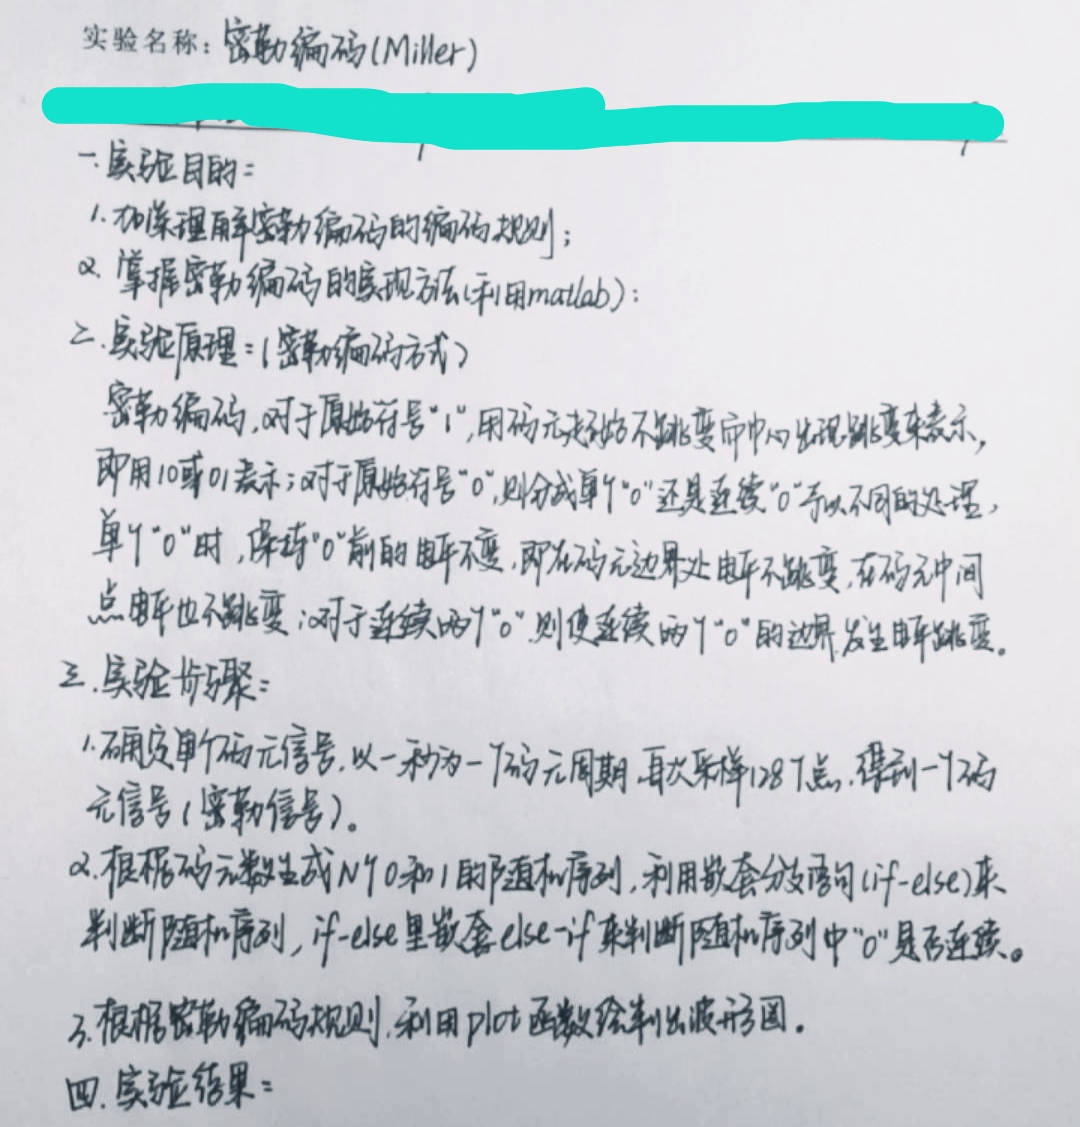 实验名称：密勒编码(Miller)
一.实验目的：
1.加深理解密勒编码的编码规则；
2.掌握密勒编码的实现方法(利用matlab)：
二.实验原理：(密勒编码方式)
密勒编码,对于原始符号"1",用码元起始不跳变而中心出现跳变来表示,
即用10或01表示；对于原始符号"0",则分成单个"0"还是连续"0"予以不同的处理,
单个"0"时,保持"0"前的电平不变,即在码元边界处电平不跳变,在码元中间
点电平也不跳变；对于连续两个"0"则使连续两个"0"的边界发生电平跳变。
三.实验步骤：
1.确定单个码元信号,以一秒为一个码元周期,每次采样128个点,得到一个码
元信号(密勒信号)。
2.根据码元数生成N个0和1的随机序列,利用嵌套分支语句(if-else)来
判断随机序列,if-else里嵌套else-if来判断随机序列中"0"是否连续。
3.根据密勒编码规则,利用plot函数绘制出波形图。
四.实验结果：